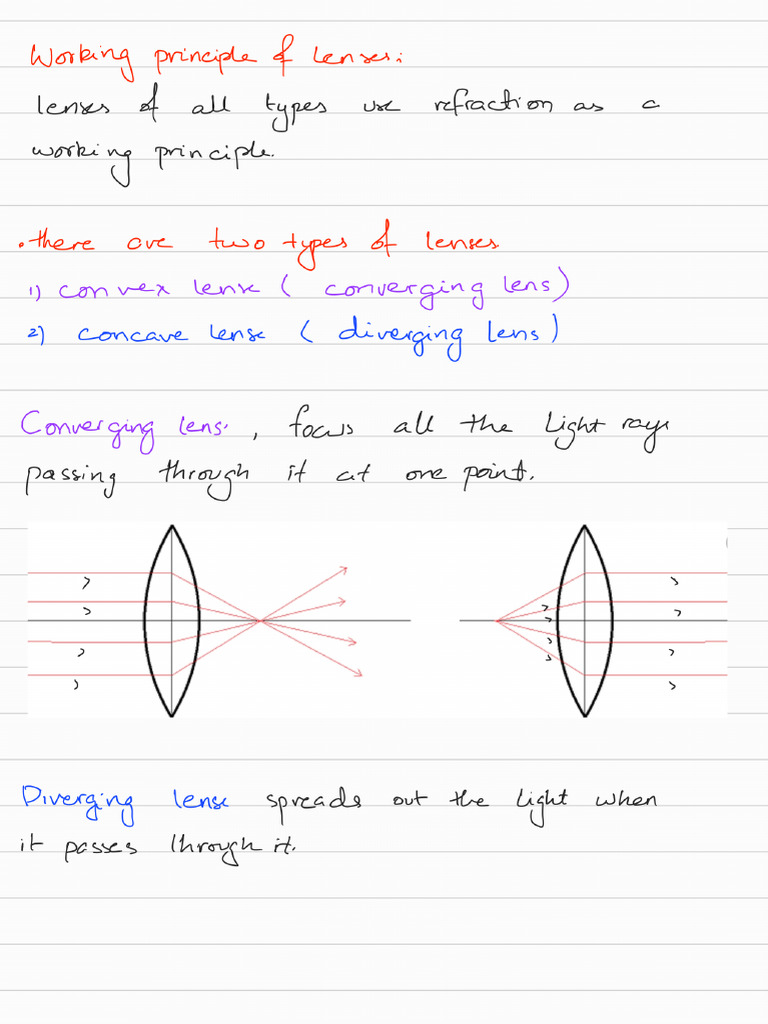 Working principle of lenses:
lenses of all types use refraction as a
working principle.
• there are two types of lenses
1) convex lense ( converging lens)
2) concave lense ( diverging lens)
Converging lens, focus all the light rays
passing through it at one point.
Diverging lense spreads out the light when
it passes through it.